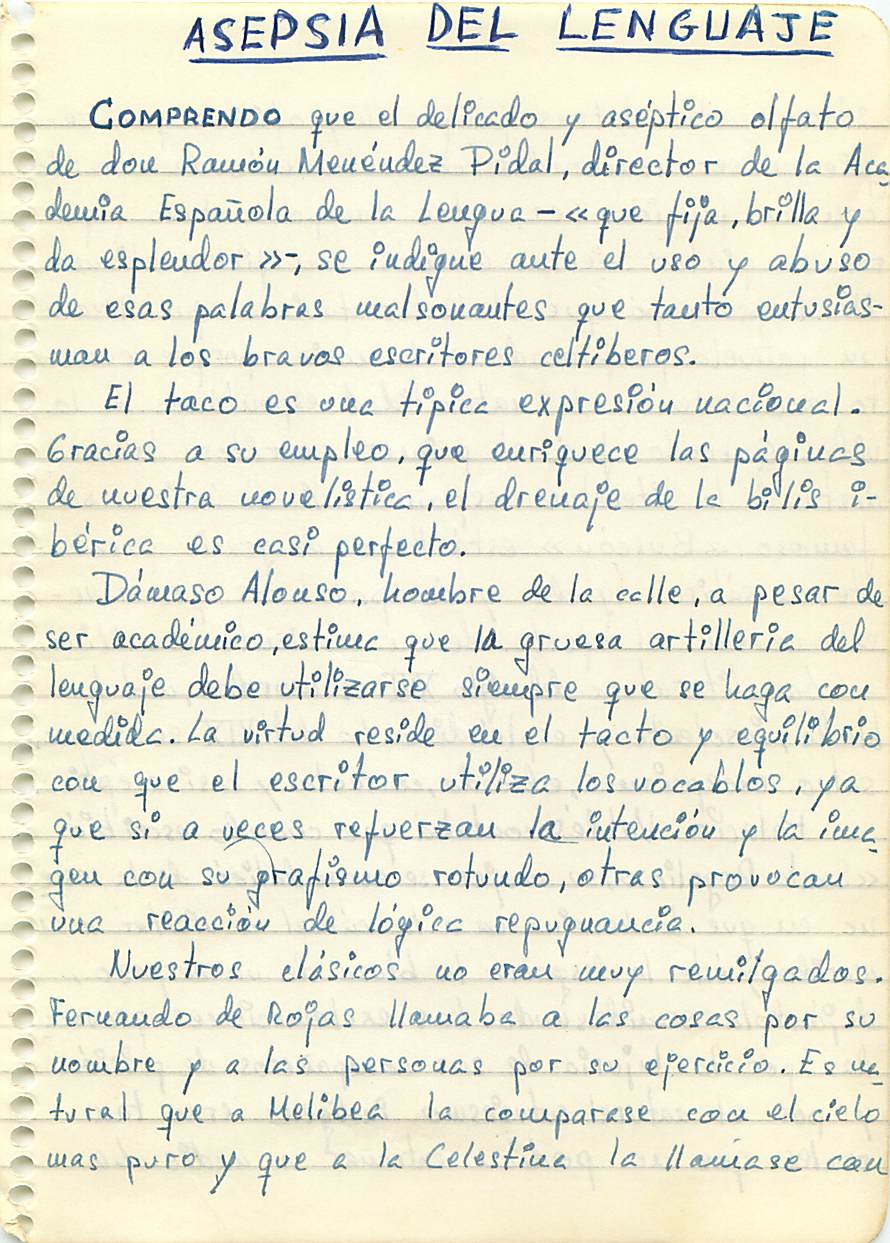 ASEPSIA DEL LENGUAJE
COMPRENDO que el delicado y aséptico olfato
de don Ramón Menéndez Pidal, director de la Aca
demia Española de la Lengua -«que fija, brilla y
da esplendor»-, se indigne ante el uso y abuso
de esas palabras malsonantes que tanto entusias-
man a los bravos escritores celtiberos.
El taco es una típica expresión nacional.
Gracias a su empleo, que enriquece las páginas
de nuestra novelística, el drenaje de la bilis i-
bérica es casi perfecto.
Dámaso Alonso, hombre de la calle, a pesar de
ser académico, estima que la gruesa artilleria del
lenguaje debe utilizarse siempre que se haga con
medida. La virtud reside en el tacto y equilibrio
con que el escritor utiliza los vocablos, ya
que si a veces refuerzan la intención y la ima
gen con su grafismo rotundo, otras provocan
una reacción de lógica repugnancia.
Nuestros clásicos no eran muy remilgados.
Fernando de Rojas llamaba a las cosas por su
nombre y a las personas por su ejercicio. Es na
tural que a Melibea la comparase con el cielo
mas puro y que a la Celestina la llamase con